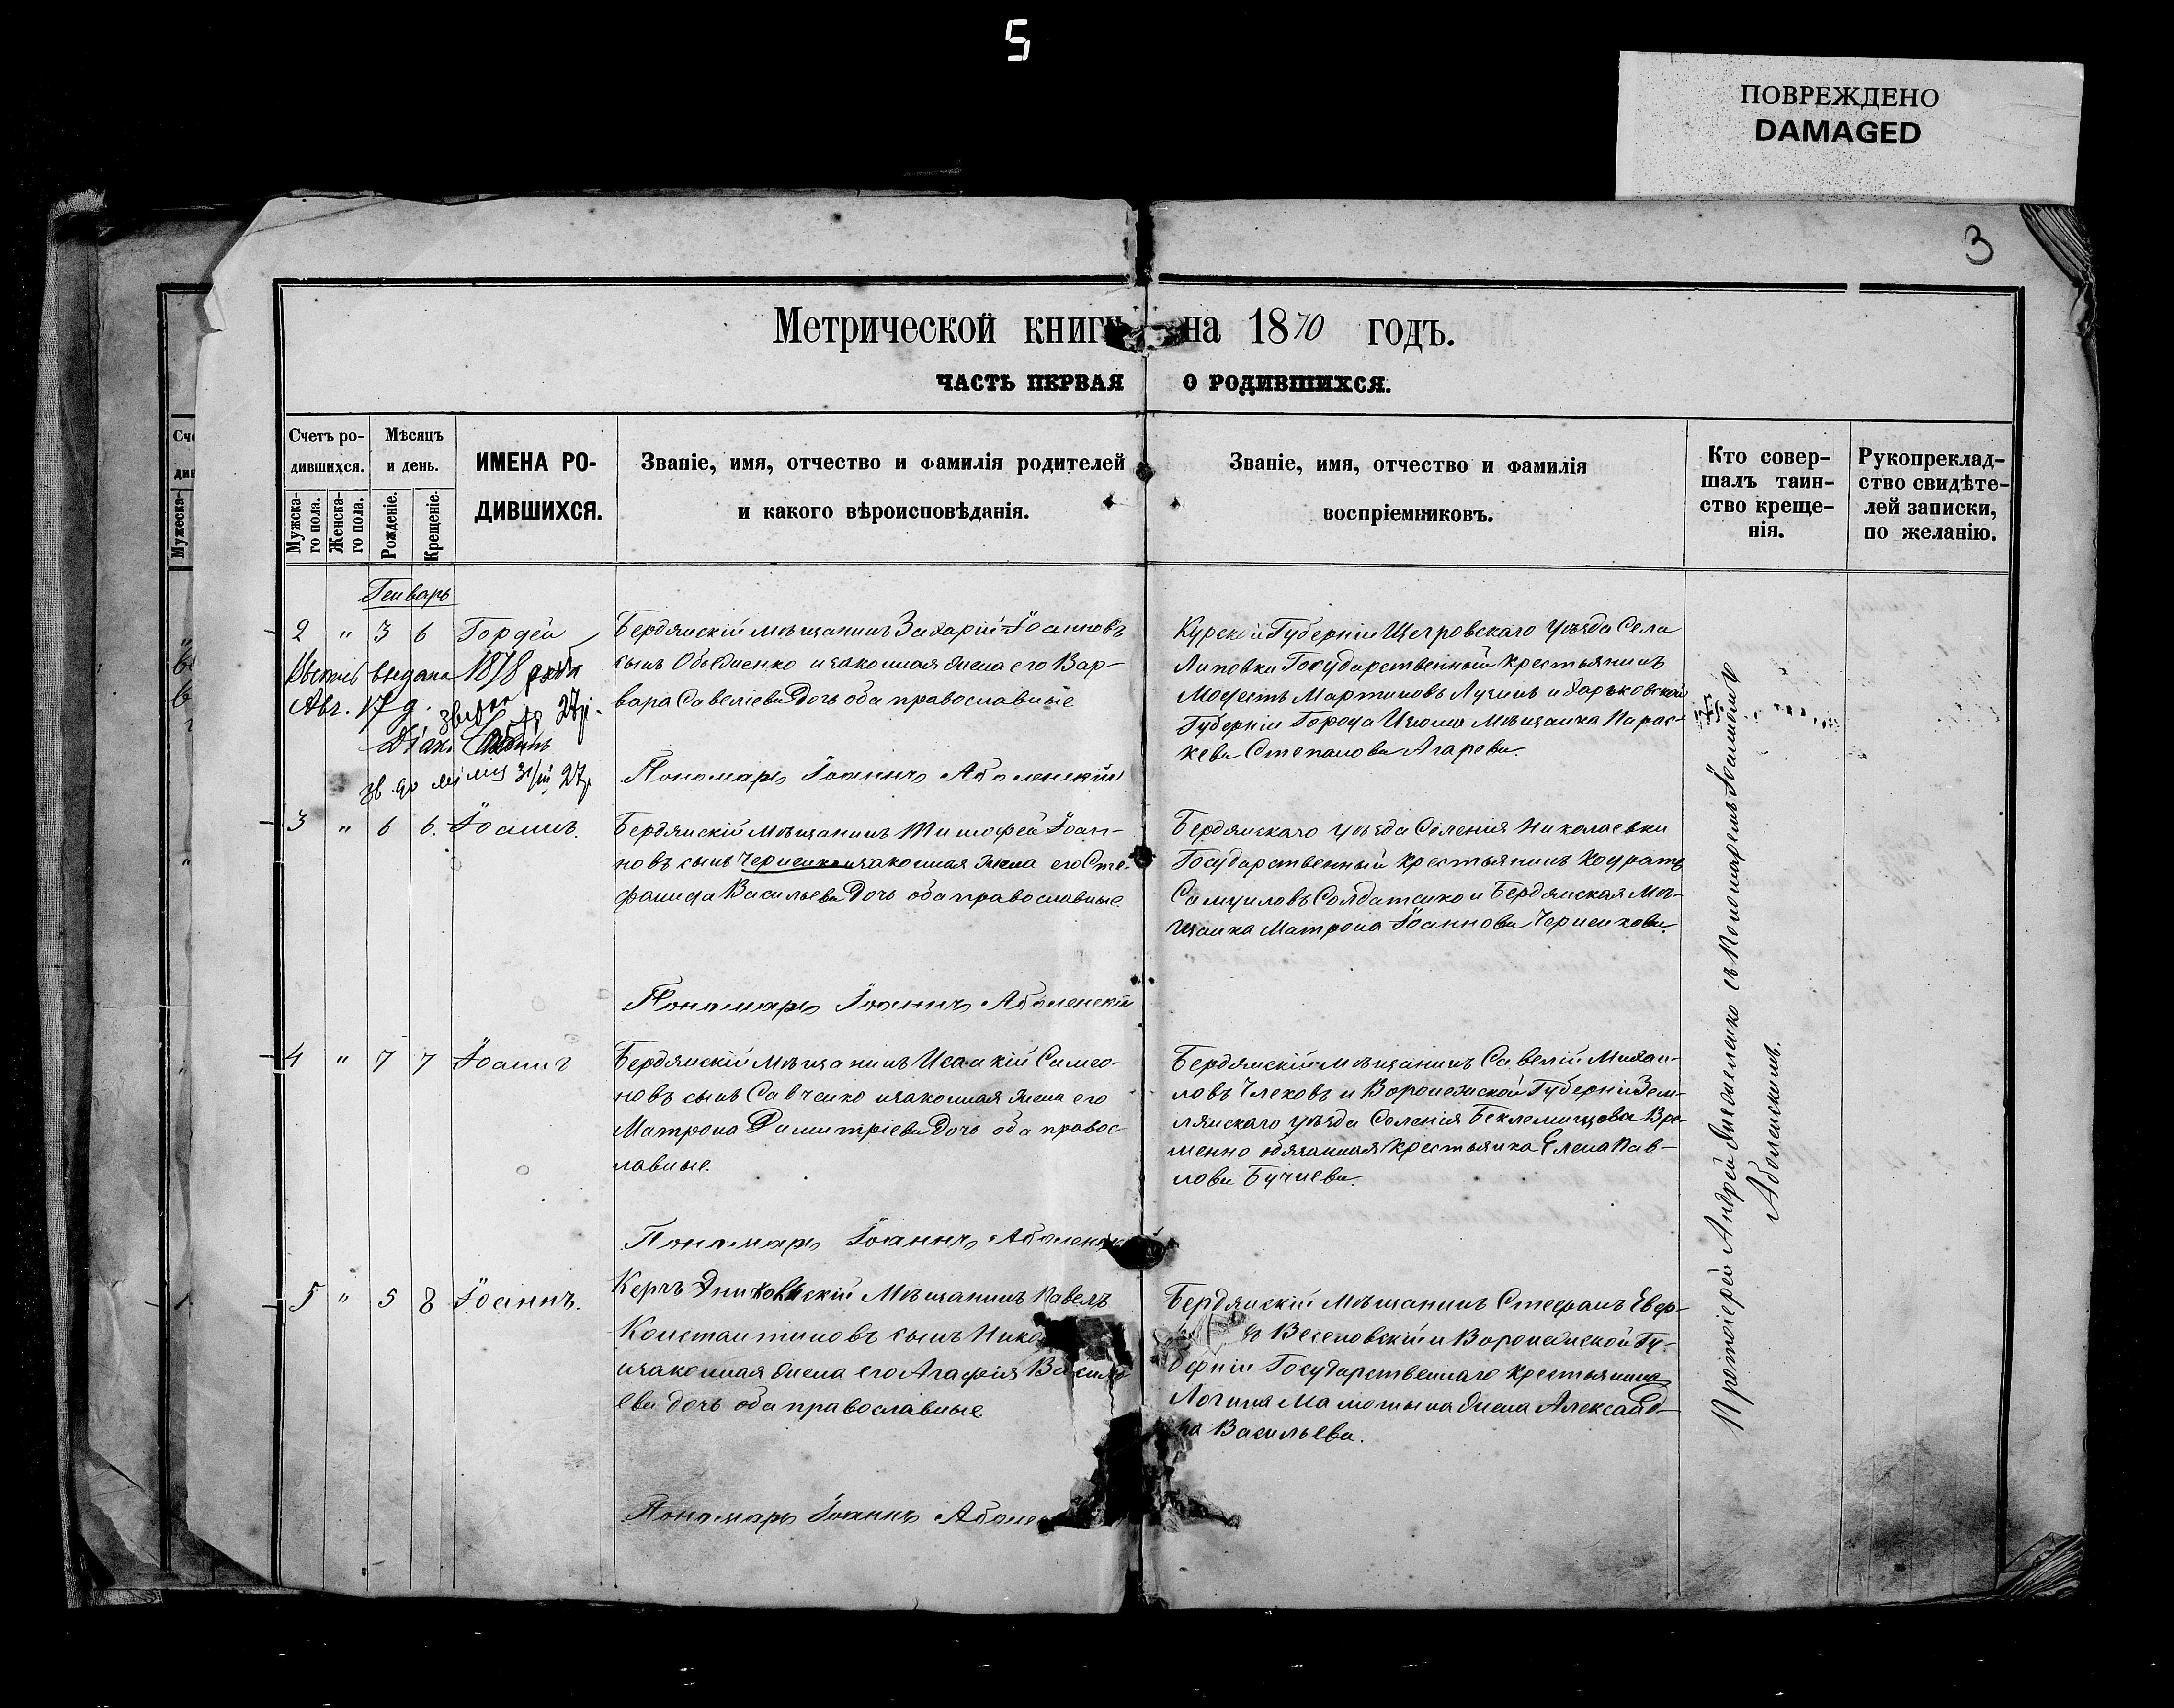 5
ПОВРЕЖДЕНО
DAMAGED
3
Метрической книги на 1870 годъ.
ЧАСТЬ ПЕРВАЯ О РОДИВШИХСЯ.
Счетъ ро-
дившихся.
Мужска-
го пола.
Женска-
го пола.
Мѣсяцъ
и день.
Рожденіе.
Крещеніе.
ИМЕНА РО-
ДИВШИХСЯ.
Званіе, имя, отчество и фамилія родителей
и какого вѣроисповѣданія.
Званіе, имя, отчество и фамилія
воспріемниковъ.
Кто совер-
шалъ таин-
ство креще-
нія.
Рукопреклад-
ство свидѣте-
лей записки,
по желанію.
Генварь
2 " 3 6 Гордей
выдана 1878
Авг. 17 д.
27
27
Бердянскій мѣщанинъ Захарій Іоанновъ
сынъ Обедненко и законная жена его Вар-
вара Савеліева дочь оба православные
Пономарь Іоаннъ Аболенскій
Курской Губерніи Щигровскаго уѣзда Села
Липовки Государственный крестьянинъ
Модестъ Мартиновъ Лунинъ и Харьковской
Губерніи Города Изюма мѣщанка Парас-
кева Степанова Агарева.
3 " 6 6. Іоаннъ.
Бердянскій мѣщанинъ Тимофей Іоан-
новъ сынъ Черненко и законная жена его Сте-
фанида Васильева дочь оба православные
Пономарь Іоаннъ Аболенскій
Бердянскаго уѣзда Селенія Николаевки
Государственный крестьянинъ Кодратъ
Самуиловъ Солдатенко и Бердянская Мѣ-
щанка Матрона Іоаннова Черненкова.
4 " 7 7 Іоаннъ
Бердянскій мѣщанинъ Исаакій Симео-
новъ сынъ Савченко и законная жена его
Матрона Димитріева дочь оба правос-
лавные.
Пономарь Іоаннъ Аболенскій
Бердянскій мѣщанинъ Савелій Михаи-
ловъ Члековъ и Воронежской Губерніи Зем-
лянскаго уѣзда Селенія Беклемищева Вре-
менно обязанная крестьянка Елена Пав-
лова Бучнева.
5 " 5 8 Іоаннъ.
Керчь Эникольскій Мѣщанинъ Павелъ
Константиновъ сынъ
и законная жена его Агафія Василь-
ева дочь оба православные
Пономарь Іоаннъ
Бердянскій мѣщанинъ Стефанъ
Веселовскій и Воронежской Гу-
берніи Государственнаго крестьянина
Логина Мамошына жена Александ-
ра Васильева.
Протоіерей Андрей съ Пономаремъ Іоанномъ
Аболенскимъ.